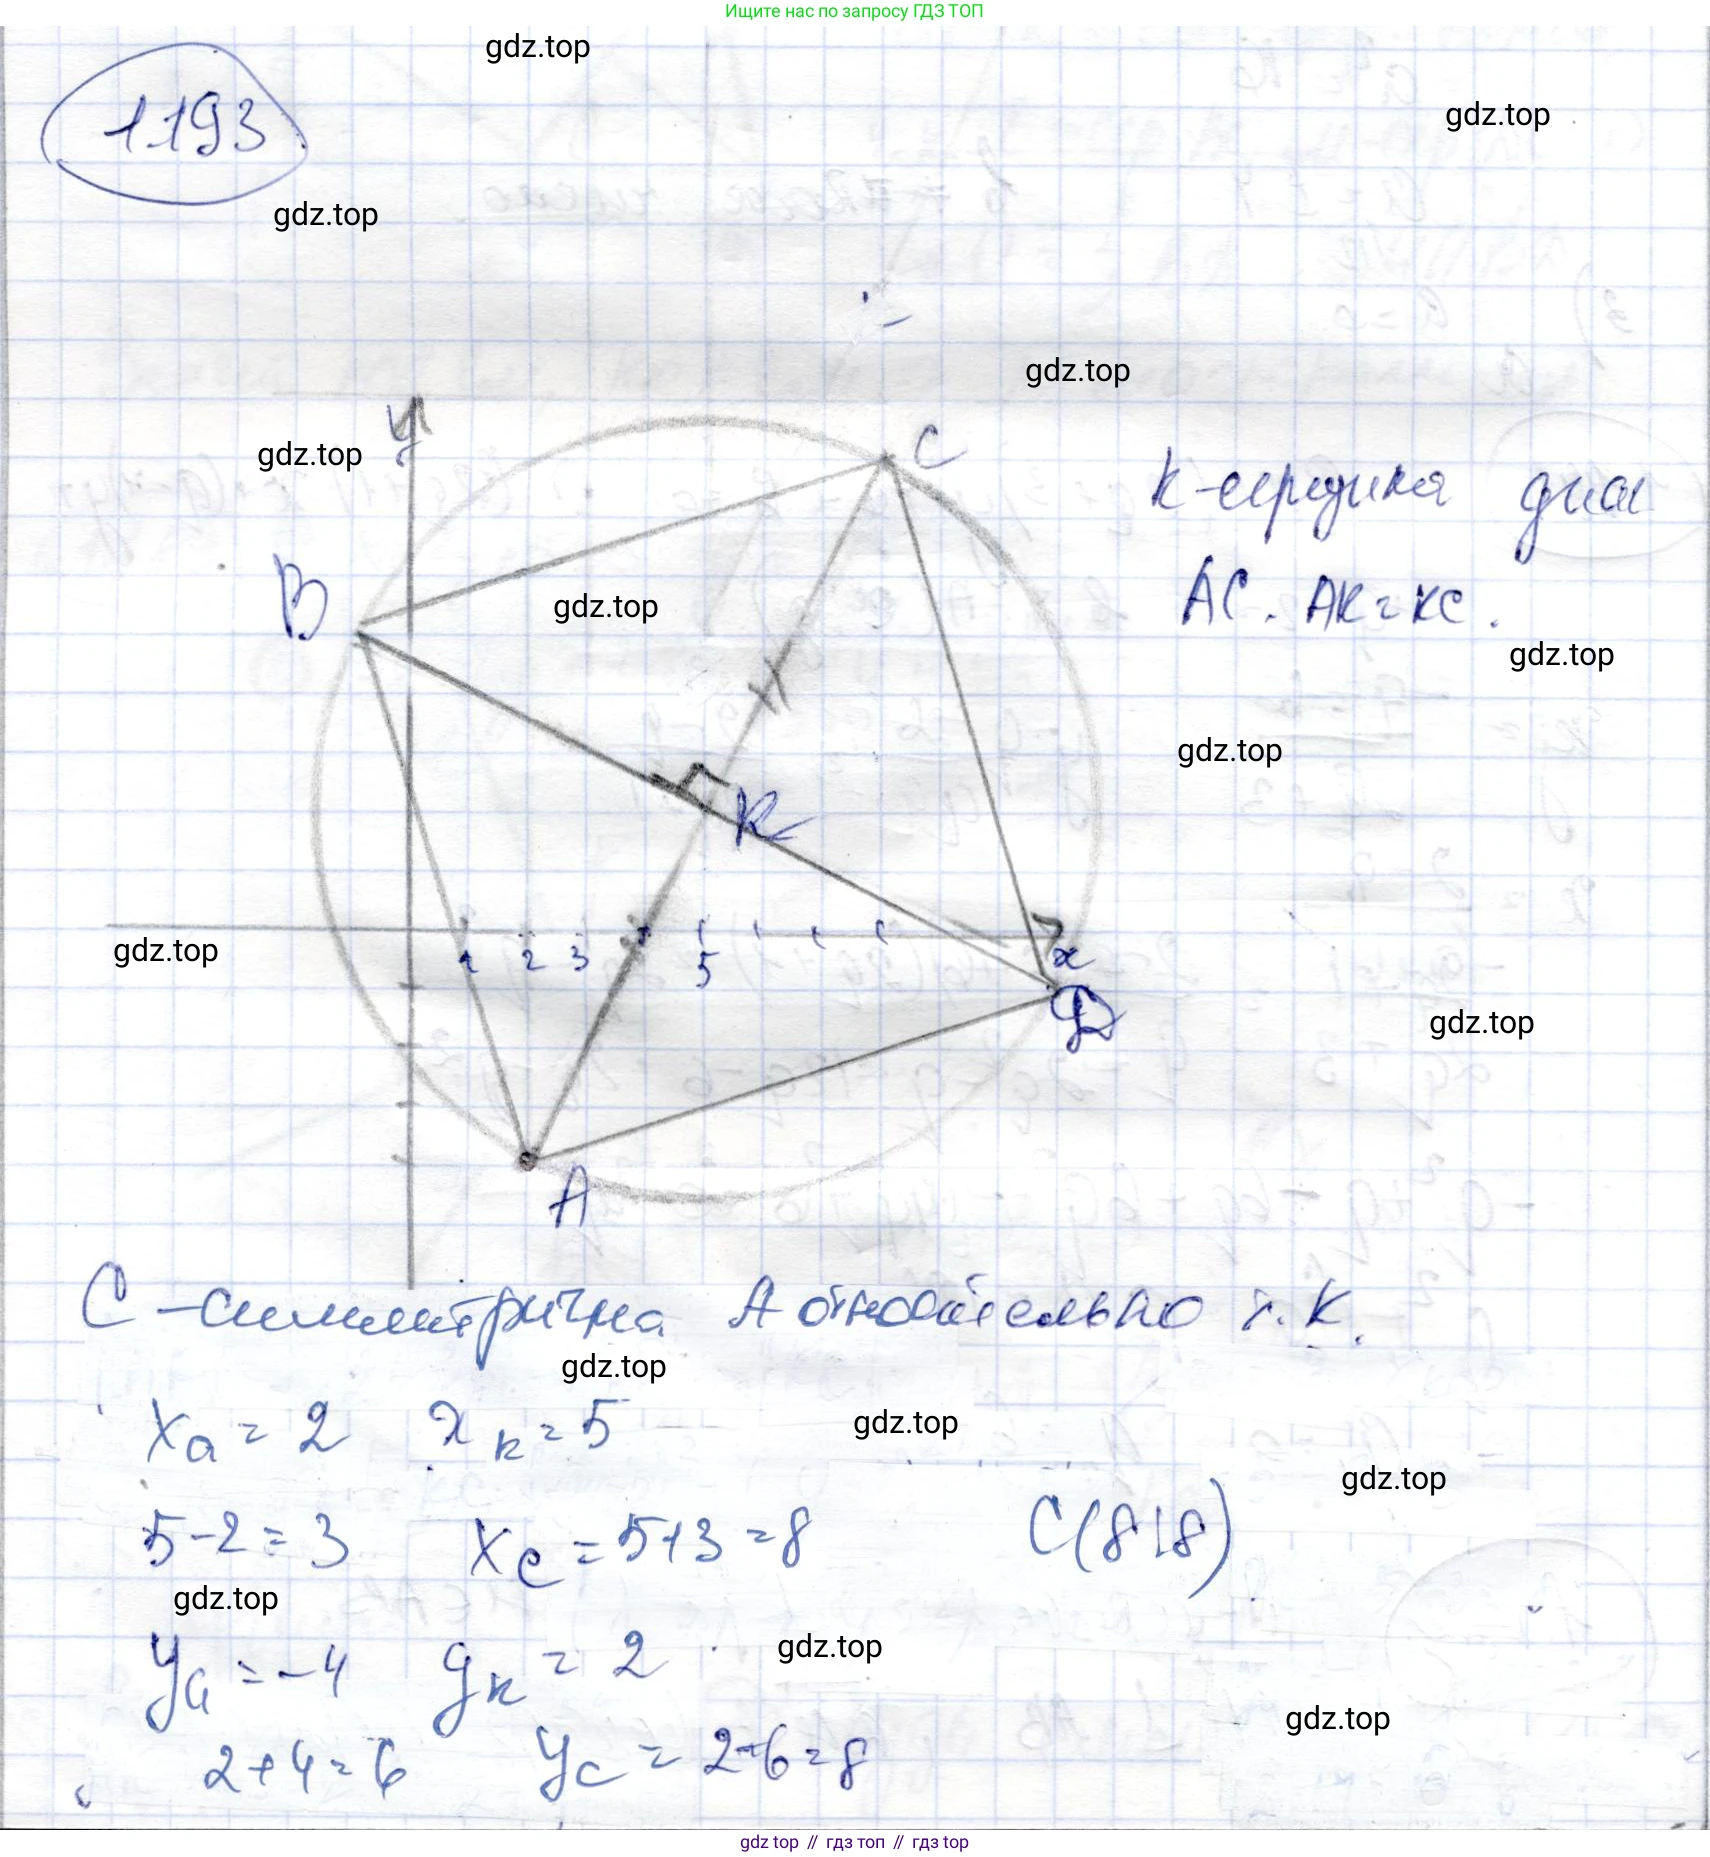 Ищите нас по запросу ГДЗ ТОП
gdz.top
gdz.top
1193
gdz.top
gdz.top
y
C
gdz.top
K-середина диаг
B
gdz.top
AC. AK=KC.
gdz.top
gdz.top
K
gdz.top
1 2 3 5
x
D
gdz.top
A
C-симметрична A относительно т. K.
gdz.top
xa = 2 xk = 5
gdz.top
gdz.top
5-2=3 xc = 5+3=8 C(8;8)
gdz.top
ya = -4 yk = 2
gdz.top
gdz.top
2+4=6 yc = 2+6=8
gdz top // гдз топ // gdz top